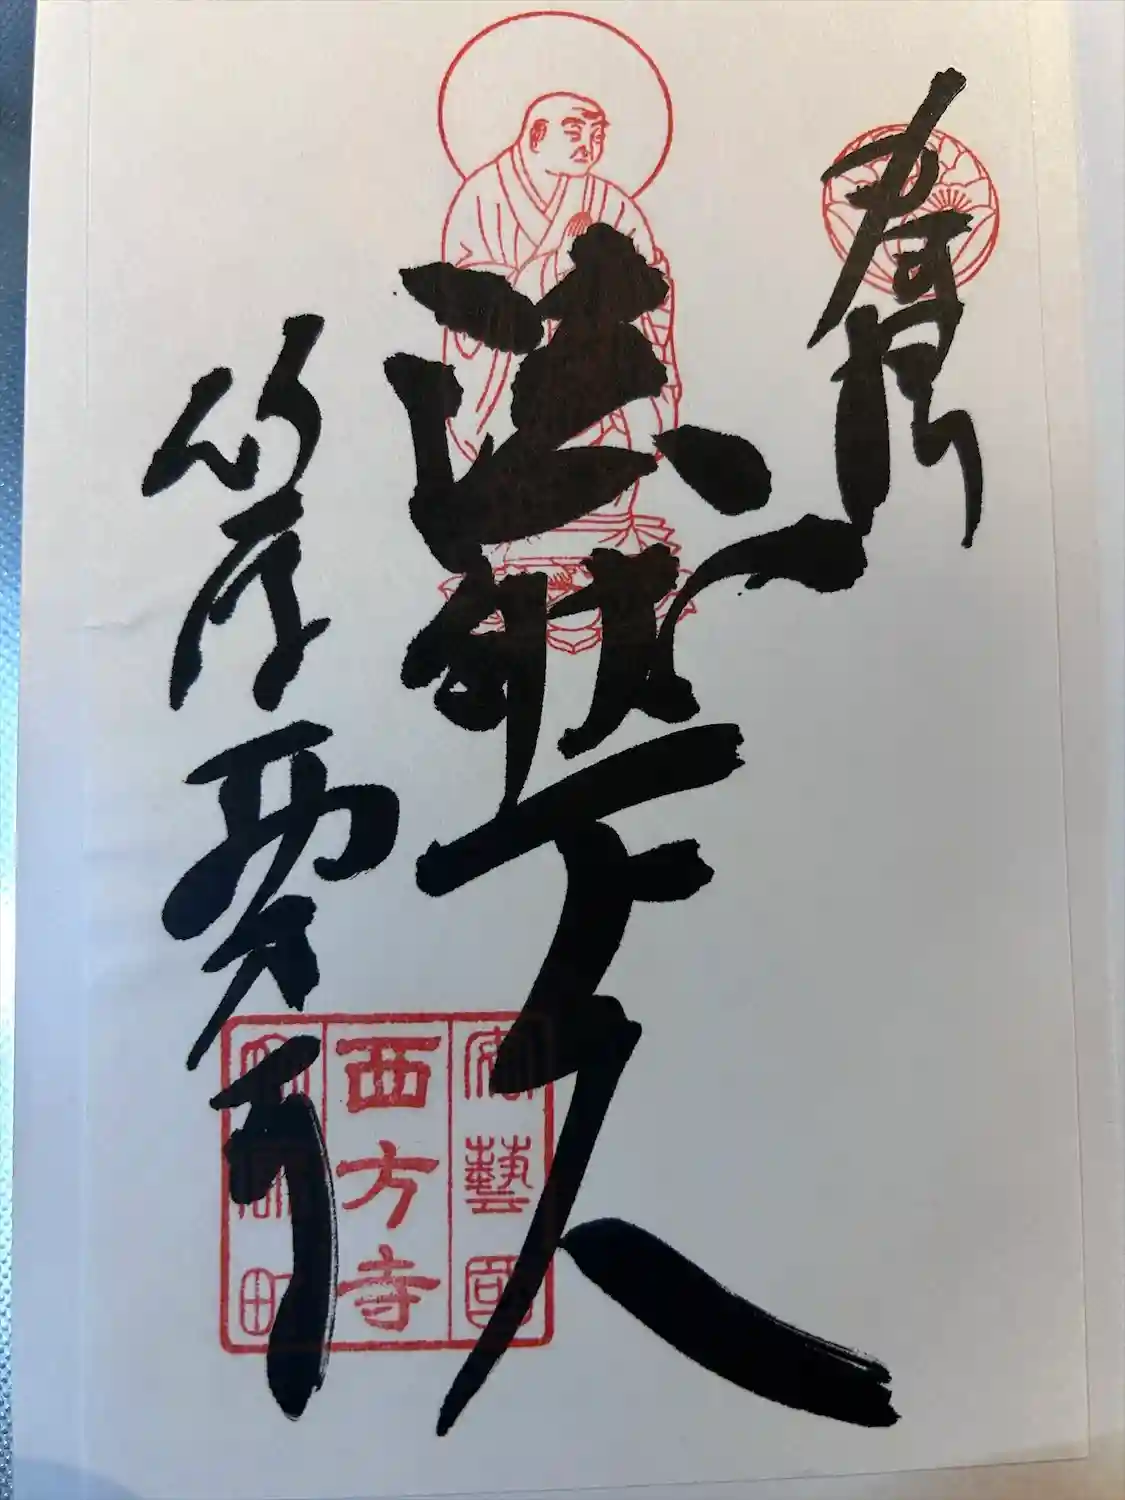 奉拝
法然上人
竹原 西方寺
安藝國
西方寺
竹原町